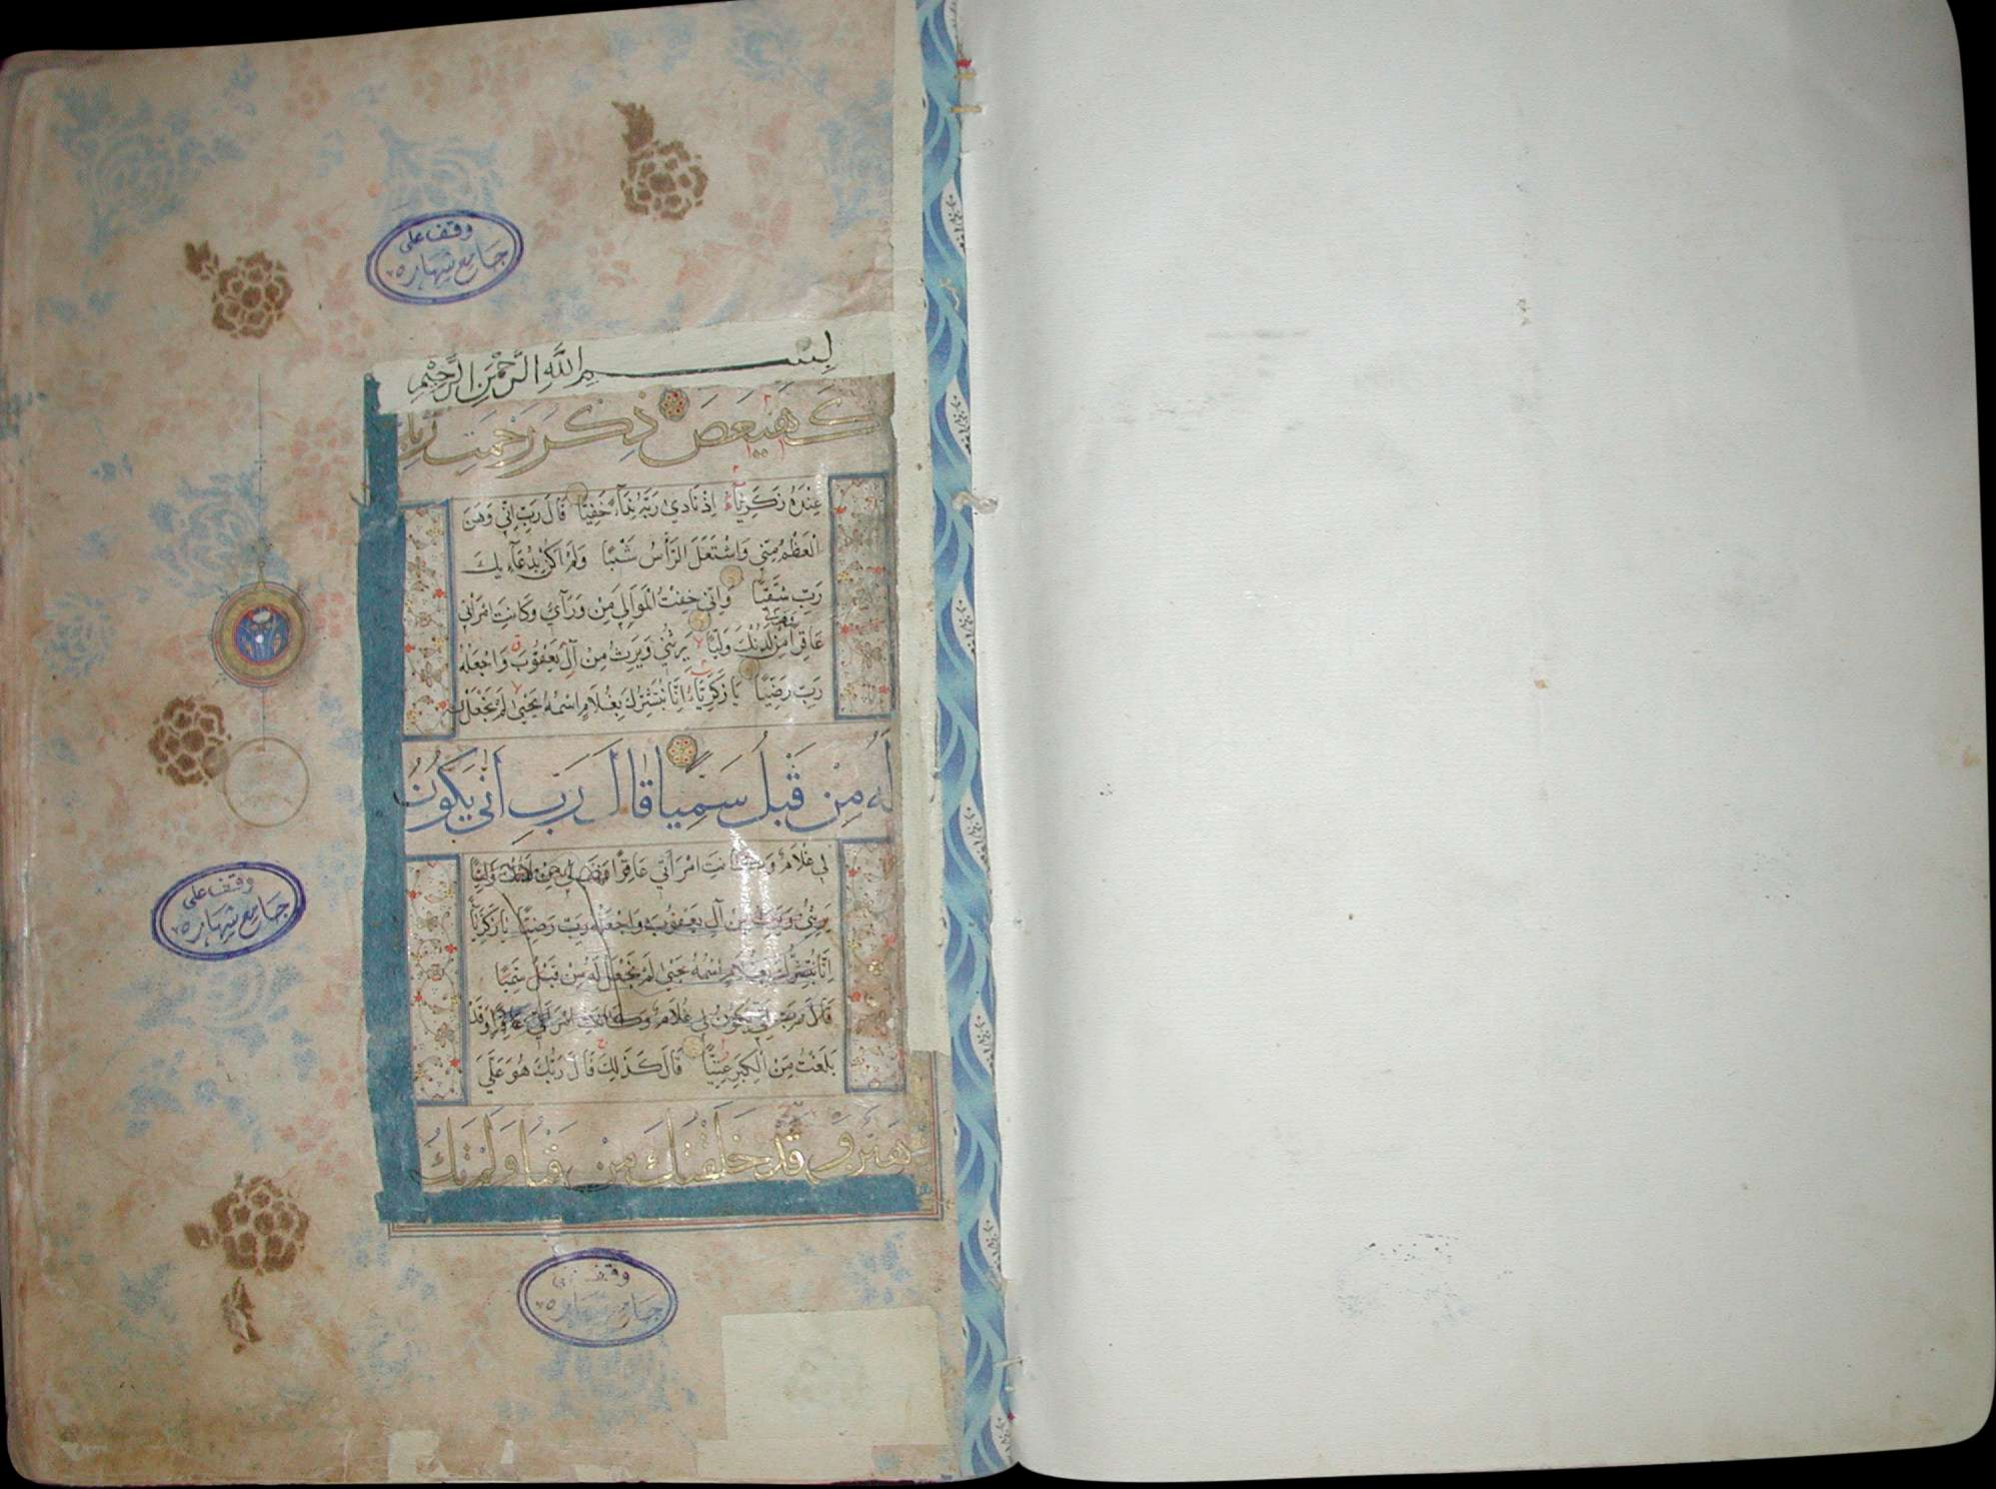 وقف على
جامع شهاره
بسم الله الرحمن الرحيم
كهيعص ذكر رحمت ربك
عبده زكرياء اذ نادى ربه نداء خفيا قال رب اني وهن
العظم مني واشتعل الرأس شيبا ولم اكن بدعائك
رب شقيا واني خفت الموالي من ورآي وكانت امرأتي
عاقرا من لدنك وليا يرثني ويرث من آل يعقوب واجعله
رب رضيا يا زكرياء انا نبشرك بغلام اسمه يحيى لم نجعل
له من قبل سميا قال رب انى يكون
لي غلام وكانت امرأتي عاقرا فهب لي من لدنك وليا
يرثني ويرث من آل يعقوب واجعله رب رضيا يا زكريا
انا نبشرك بغلام اسمه يحيى لم نجعل له من قبل سميا
قال رب انى يكون لي غلام وكانت امرأتي عاقرا وقد
بلغت من الكبر عتيا قال كذلك قال ربك هو علي
هين وقد خلقتك من قبل ولم تك
وقف على
جامع شهاره
وقف
جامع شهاره